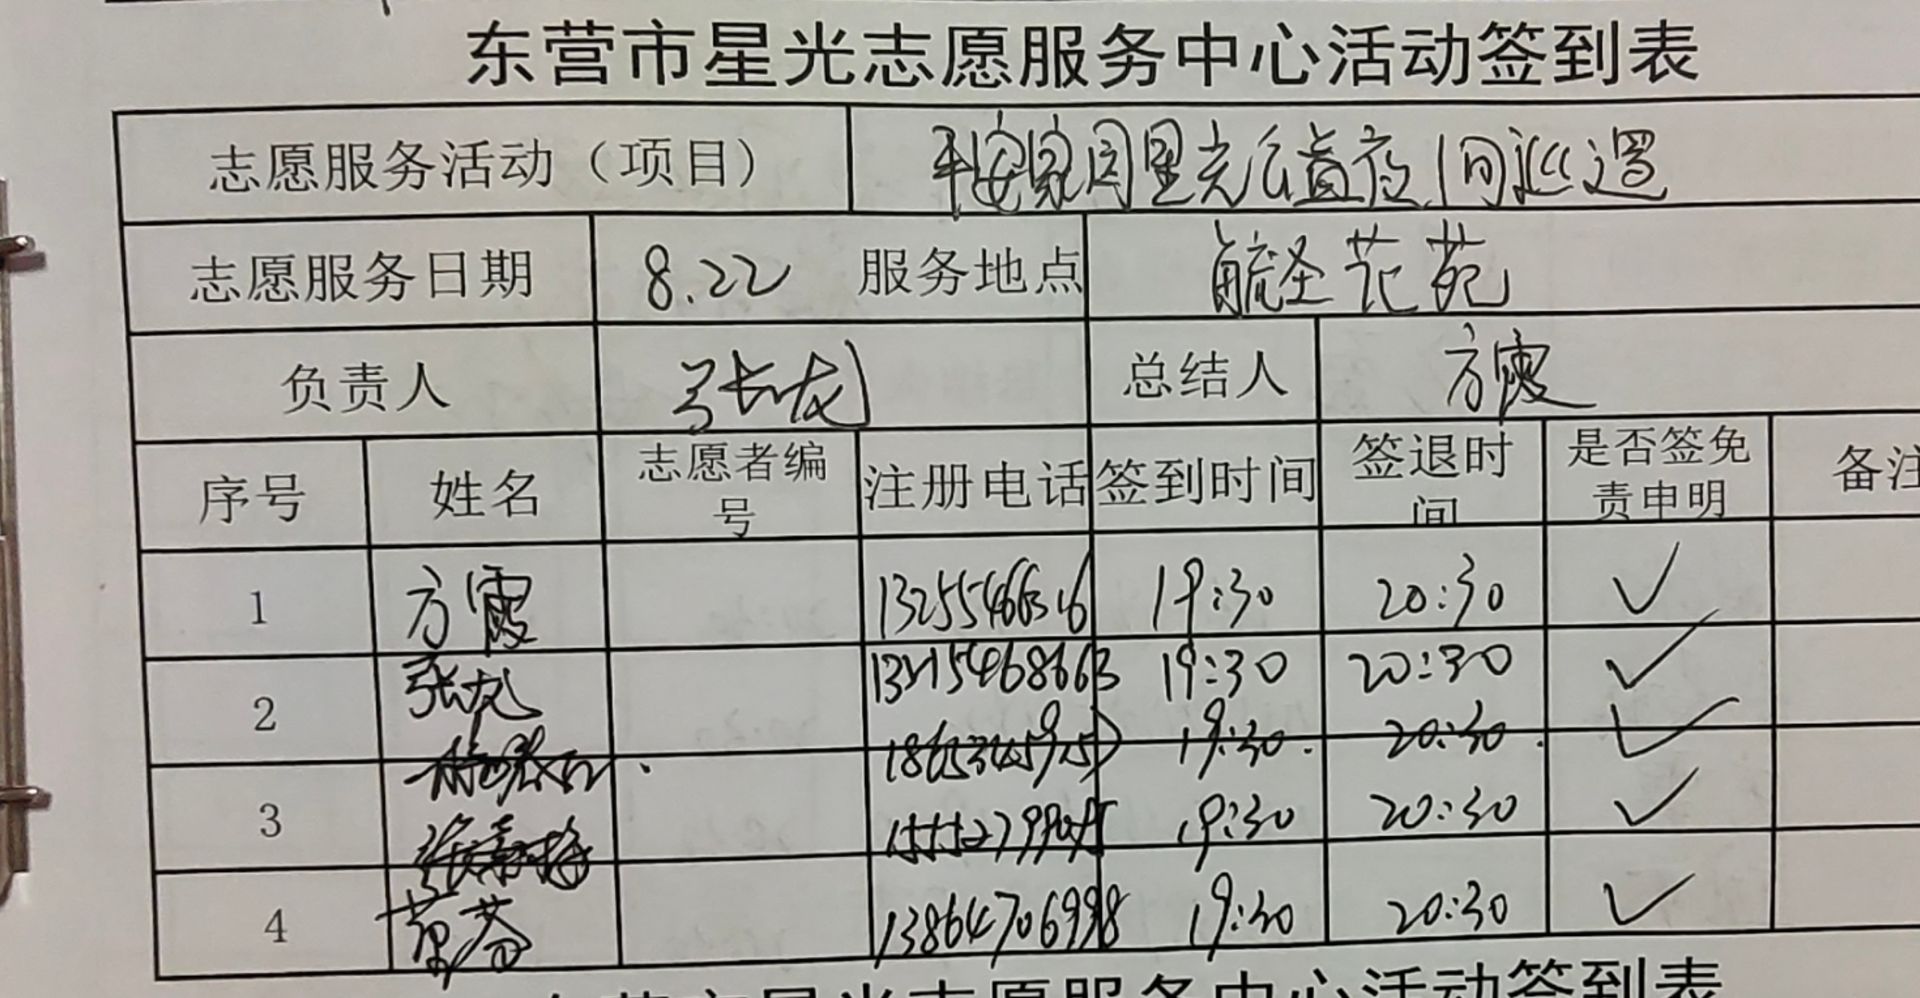 东营市星光志愿服务中心活动签到表
志愿服务活动（项目） 平安家园星光公益夜间巡逻
志愿服务日期 8.22 服务地点 毓圣花苑
负责人 张龙 总结人 方霞
序号 姓名 志愿者编号 注册电话 签到时间 签退时间 是否签免责申明 备注
1 方霞 19:30 20:30 ✓
2 张龙 13215468663 19:30 20:30 ✓
19:30 20:30 ✓
3 19:30 20:30 ✓
4 13864706998 19:30 20:30 ✓
东营市星光志愿服务中心活动签到表